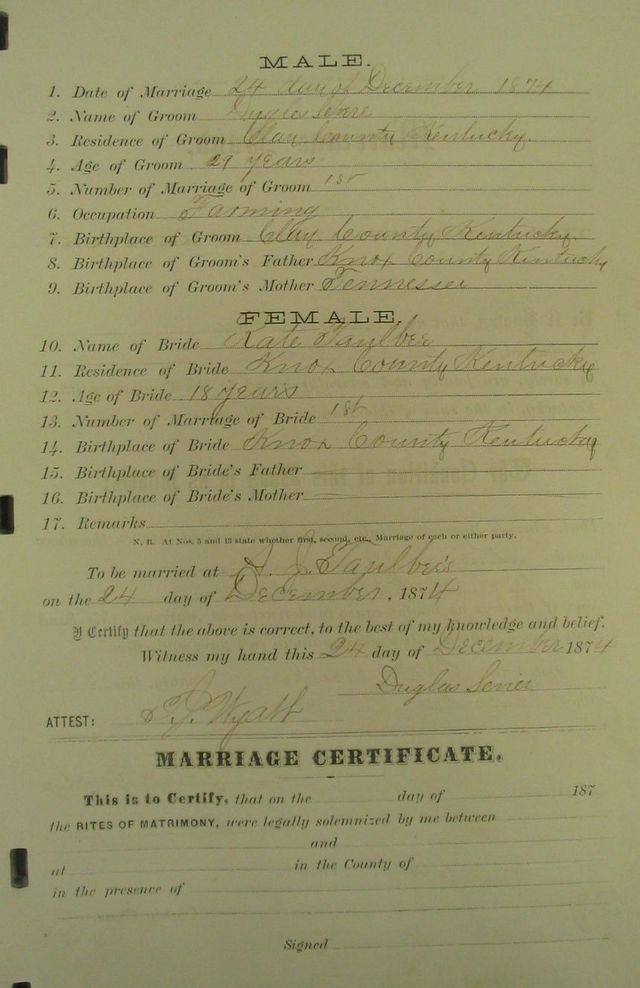 MALE.
1. Date of Marriage 24 day of December 1874
2. Name of Groom Duglas Severe
3. Residence of Groom Clay County Kentucky.
4. Age of Groom 29 years
5. Number of Marriage of Groom 1st
6. Occupation Farming
7. Birthplace of Groom Clay County Kentucky.
8. Birthplace of Groom's Father Knox County Kentucky
9. Birthplace of Groom's Mother Tennessee
FEMALE.
10. Name of Bride Kate Faulber
11. Residence of Bride Knox County Kentucky
12. Age of Bride 18 years
13. Number of Marriage of Bride 1st
14. Birthplace of Bride Knox County Kentucky
15. Birthplace of Bride's Father
16. Birthplace of Bride's Mother
17. Remarks
N. B. At Nos. 5 and 13 state whether first, second, etc., Marriage of each or either party.
To be married at J. Faulber's
on the 24 day of December, 1874
I Certify that the above is correct, to the best of my knowledge and belief.
Witness my hand this 24 day of December 1874
Duglas Sevier
ATTEST: J. Wyatt
MARRIAGE CERTIFICATE.
This is to Certify, that on the day of 187
the RITES OF MATRIMONY, were legally solemnized by me between
and
at in the County of
in the presence of
Signed